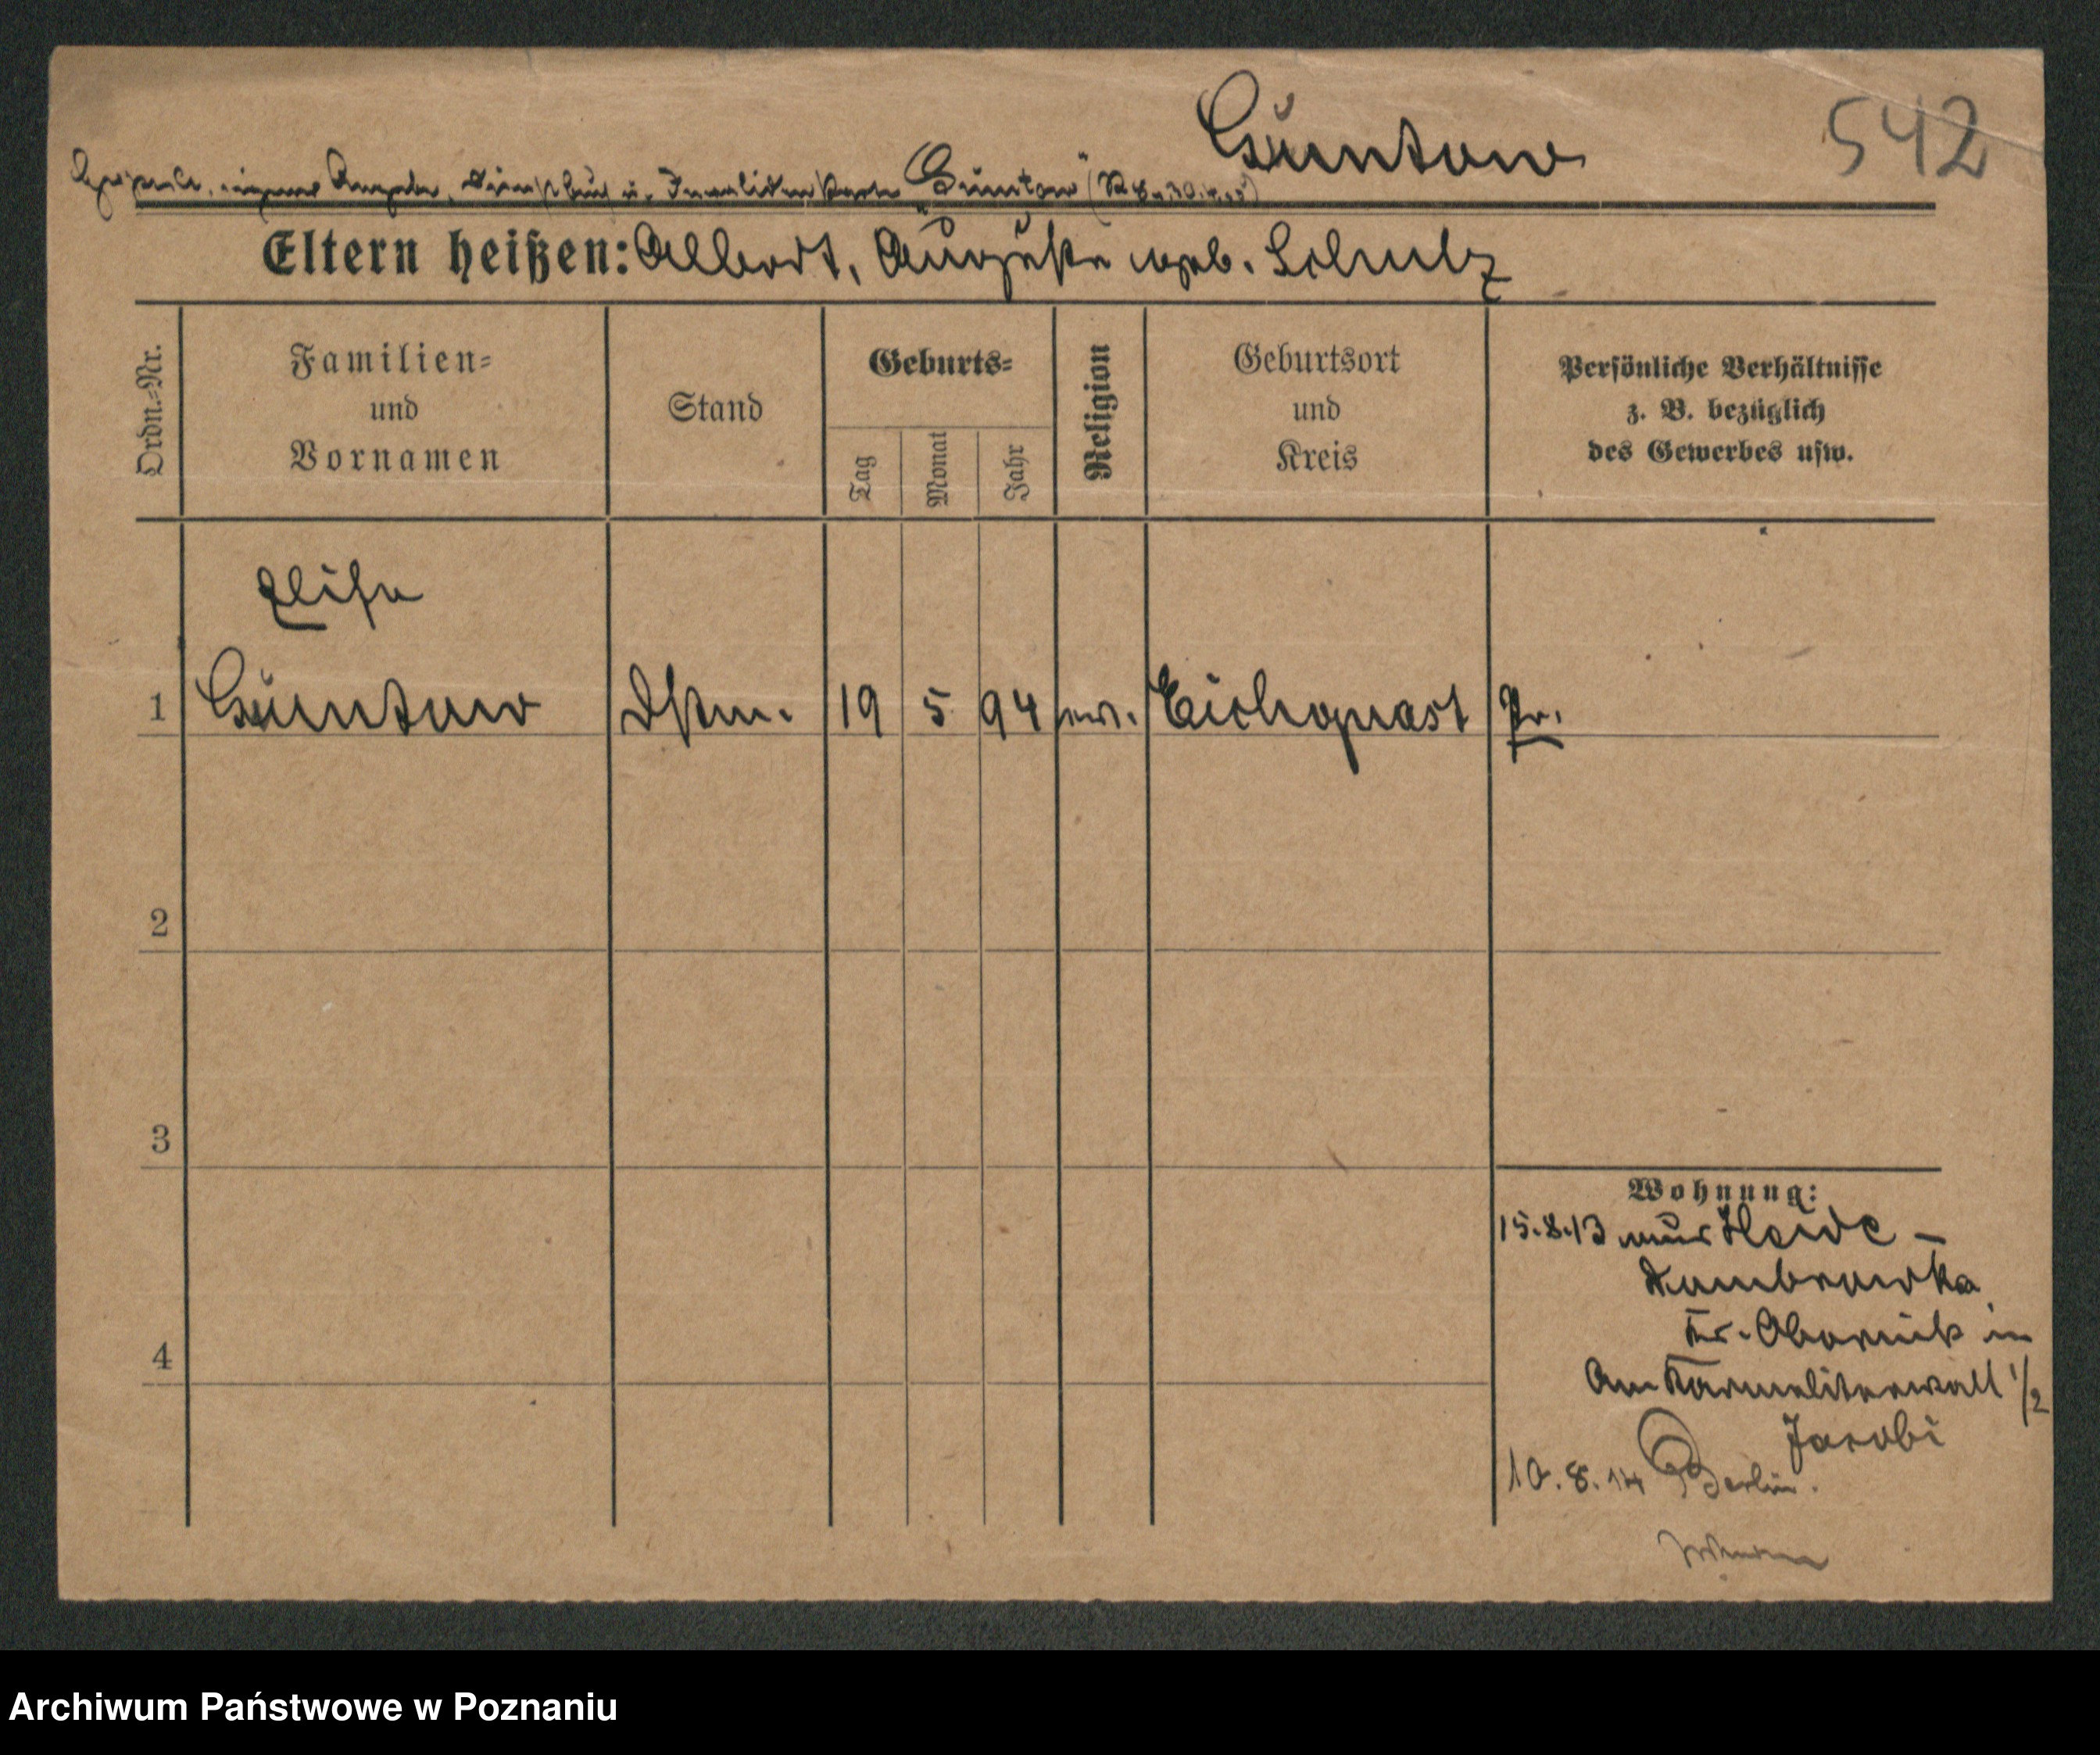 Güntow
542
eigene Angabe, Dienstbuch u. Invalidenkarte "Güntow"
Eltern heißen: Albert, Auguste geb. Schulz
Ordn.=Nr.
Familien=
und
Vornamen
Stand
Geburts=
Tag
Monat
Jahr
Religion
Geburtsort
und
Kreis
Persönliche Verhältnisse
z. B. bezüglich
des Gewerbes usw.
Elise
1 Güntow Dstm. 19 5 94 ev. Eichquast Pr.
2
3
4
Wohnung:
15.8.13 aus Heide -
Dombrowka
Kr. Obornik in
Am Karmeliterwall 1/2
Jacobi
10.8.14 Berlin.
Archiwum Państwowe w Poznaniu